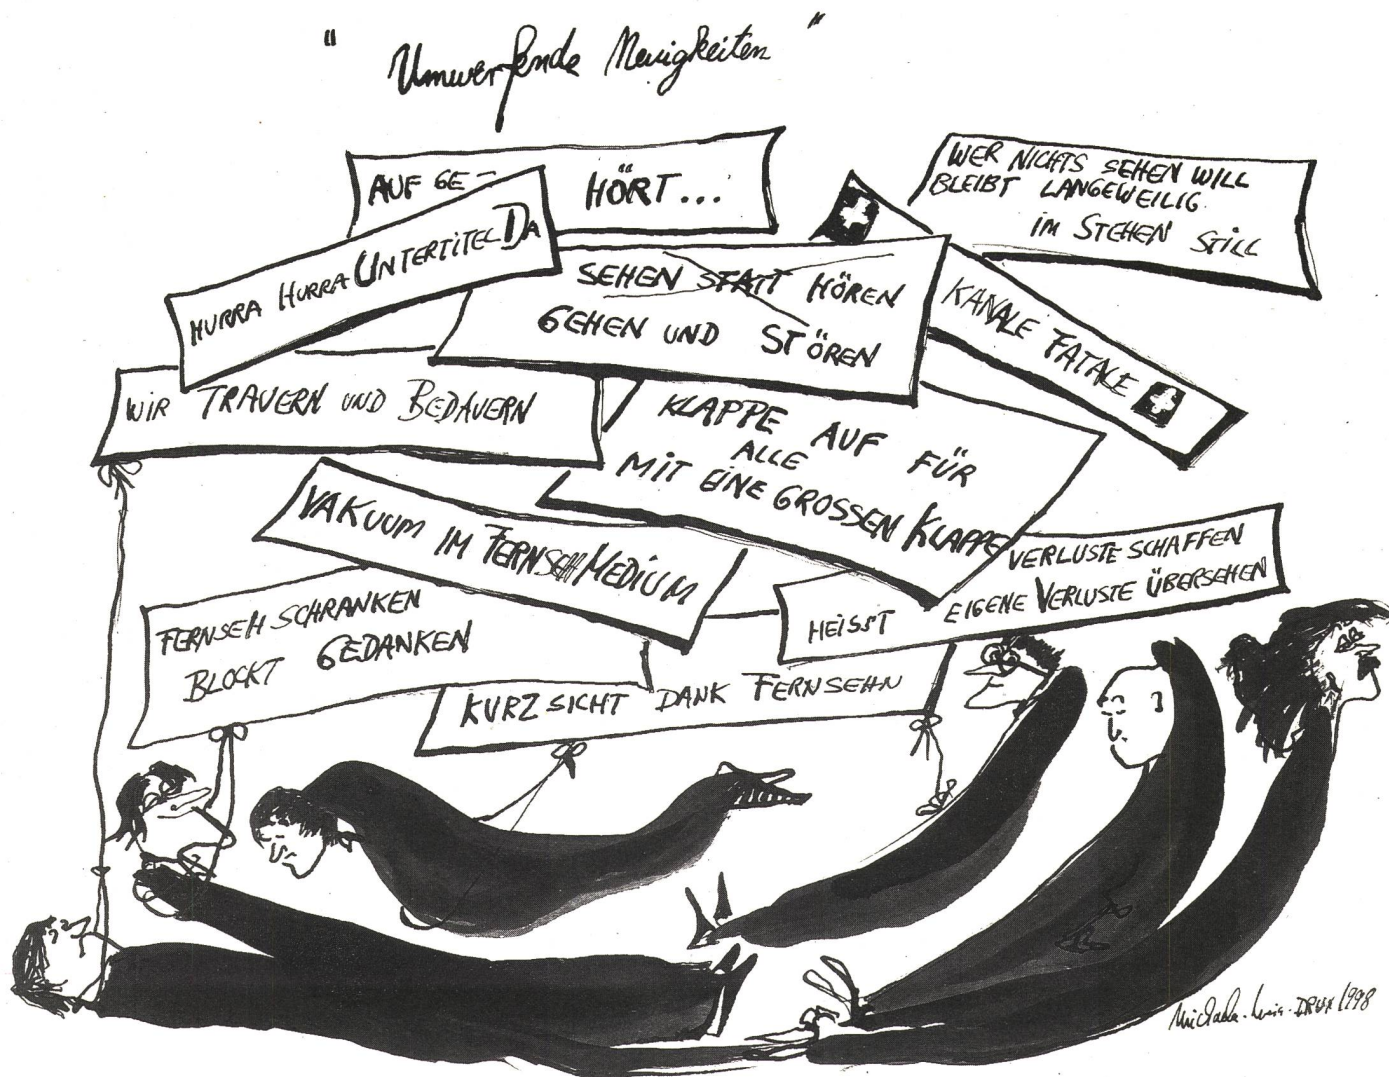 " Umwerfende Neuigkeiten "
AUF GE- HÖRT...
WER NICHTS SEHEN WILL
BLEIBT LANGEWEILIG
IM STEHEN STILL
HURRA HURRA UNTERTITEL DA
SEHEN STATT HÖREN
GEHEN UND STÖREN
KANALE FATALE
WIR TRAUERN UND BEDAUERN
KLAPPE AUF FÜR
ALLE
MIT EINE GROSSEN KLAPPE
VAKUUM IM FERNSEHMEDIUM
VERLUSTE SCHAFFEN
HEISST EIGENE VERLUSTE ÜBERSEHEN
FERNSEH SCHRANKEN
BLOCKT GEDANKEN
KURZSICHT DANK FERNSEHN
1998